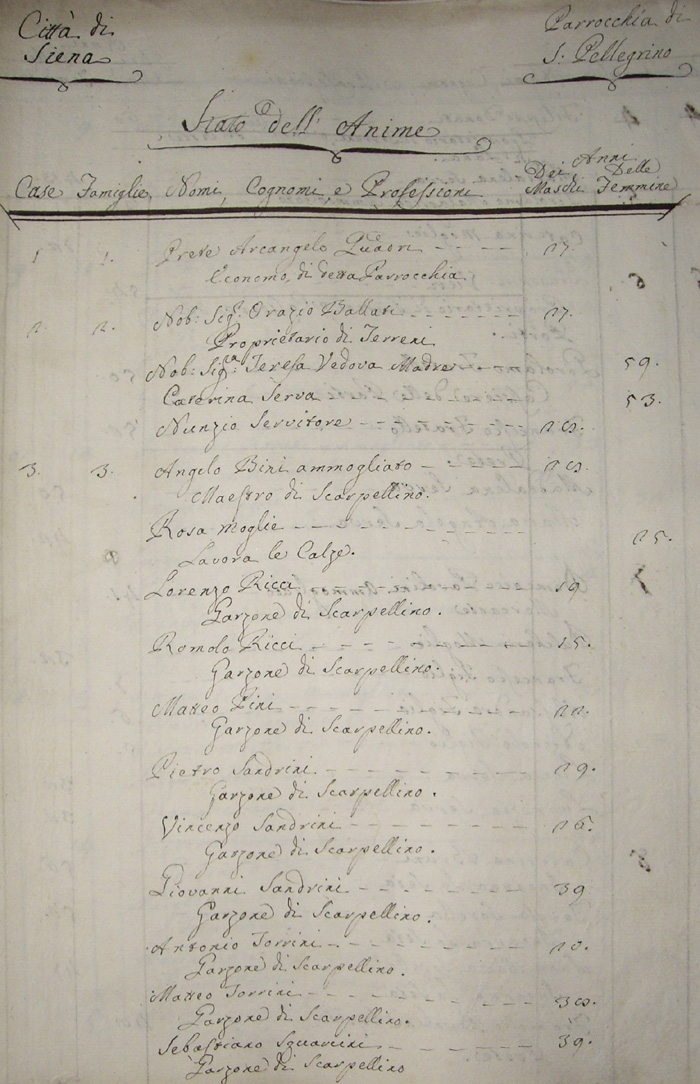 Città di Siena
Parrocchia di S. Pellegrino
Stato dell' Anime
Case Famiglie, Nomi, Cognomi, e Professioni Anni Dei Maschi Delle Femmine
1 1. Prete Arcangelo 27.
Economo di detta Parrocchia
2. 2. Nob: Sig.r Orazio Ballati 27.
Proprietario di Terreni
Nob: Sig.a Teresa Vedova Madre 59.
Caterina Serva 53.
Nunzio Servitore
3. 3. Angelo Bini ammogliato
Maestro di Scarpellino.
Rosa moglie 25.
Lavora le Calze.
Lorenzo Ricci 19
Garzone di Scarpellino.
Romolo Ricci 15.
Garzone di Scarpellino.
Matteo Pini 22.
Garzone di Scarpellino.
Pietro Sandrini 29.
Garzone di Scarpellino.
Vincenzo Sandrini 26.
Garzone di Scarpellino.
Giovanni Sandrini 39
Garzone di Scarpellino.
Antonio Torrini 20.
Garzone di Scarpellino.
Matteo Torrini
Garzone di Scarpellino.
Sebastiano Squarcini 39.
Garzone di Scarpellino